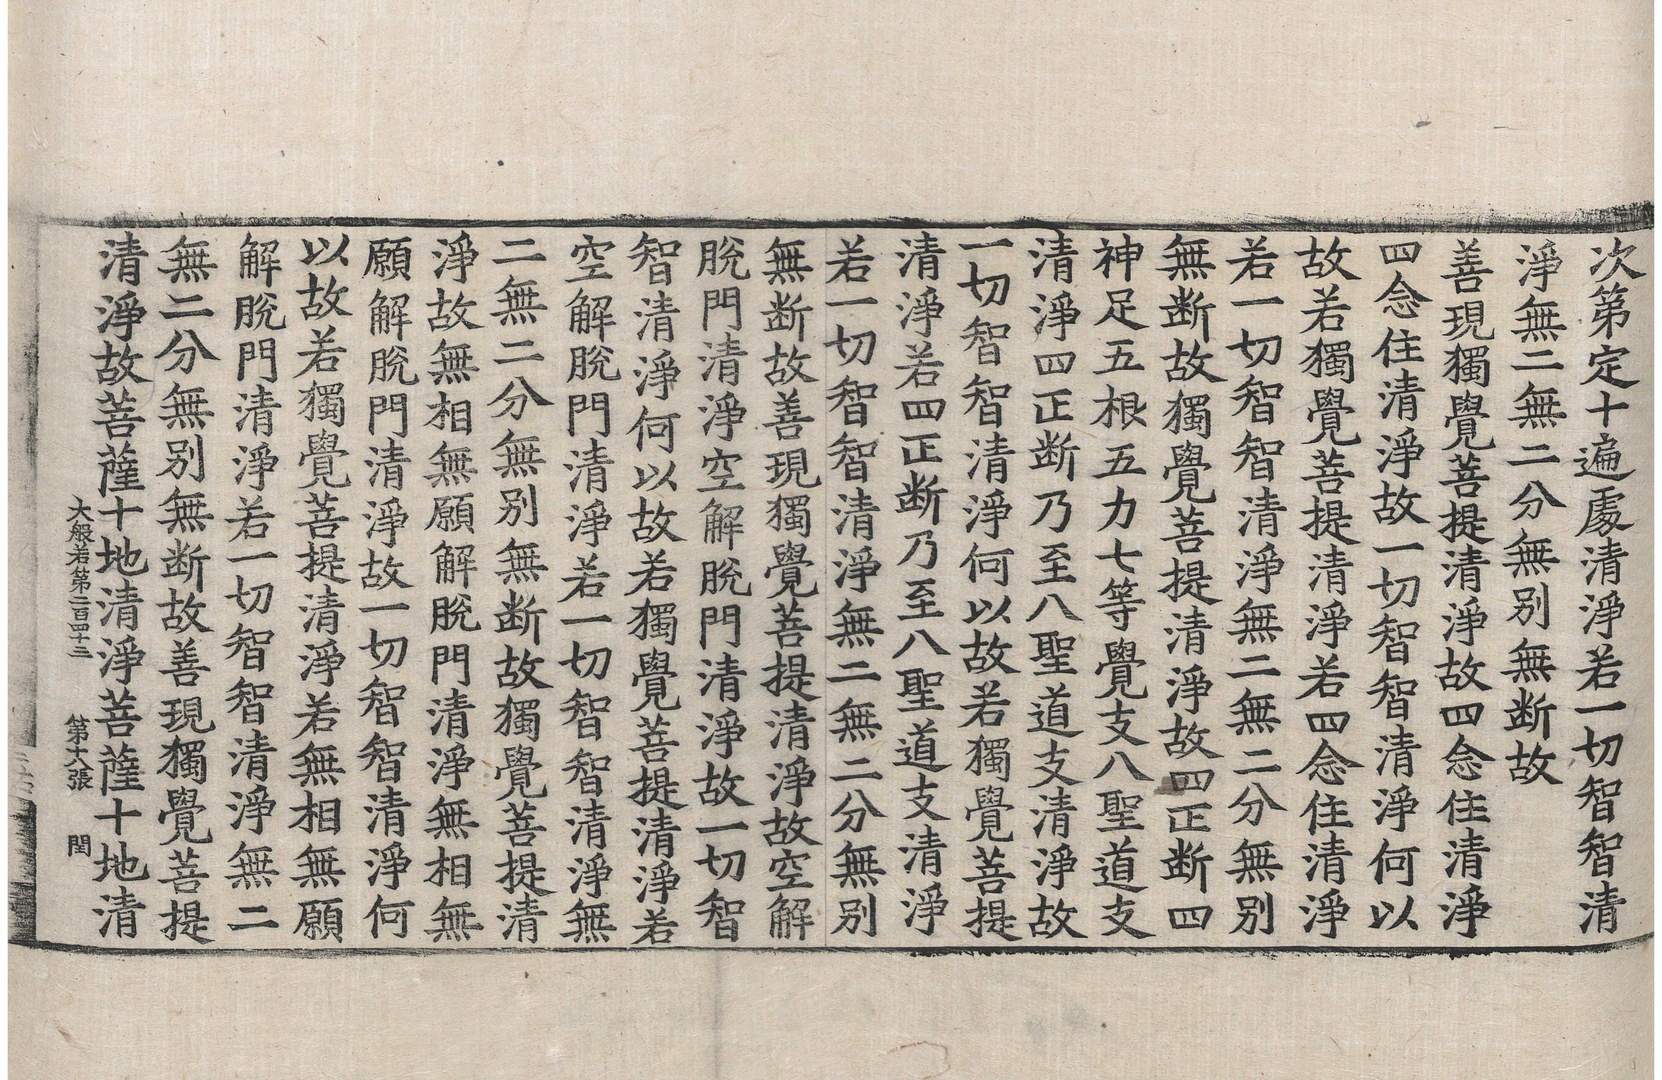 次第定十遍處清淨若一切智智清
淨無二無二分無別無断故
善現獨覺菩提清淨故四念住清淨
四念住清淨故一切智智清淨何以
故若獨覺菩提清淨若四念住清淨
若一切智智清淨無二無二分無別
無断故獨覺菩提清淨故四正断四
神足五根五力七等覺支八聖道支
清淨四正断乃至八聖道支清淨故
一切智智清淨何以故若獨覺菩提
清淨若四正断乃至八聖道支清淨
若一切智智清淨無二無二分無別
無断故善現獨覺菩提清淨故空解
脫門清淨空解脫門清淨故一切智
智清淨何以故若獨覺菩提清淨若
空解脫門清淨若一切智智清淨無
二無二分無別無断故獨覺菩提清
淨故無相無願解脫門清淨無相無
願解脫門清淨故一切智智清淨何
以故若獨覺菩提清淨若無相無願
解脫門清淨若一切智智清淨無二
無二分無別無断故善現獨覺菩提
清淨故菩薩十地清淨菩薩十地清
大般若第二百四十三 第張 閏